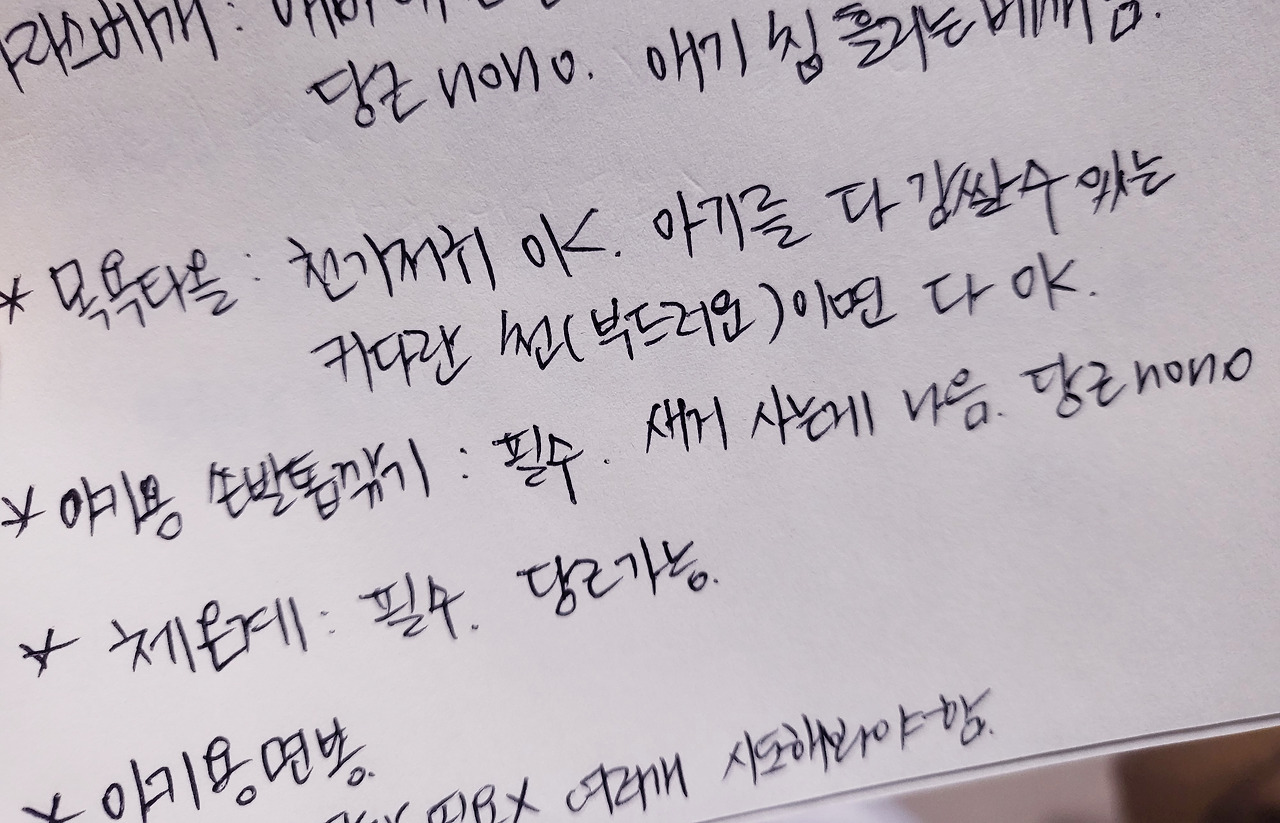 당근 nono. 애기 침 흘리는 베개임.
* 목욕타올 : 천기저귀 OK. 아기를 다 감쌀수 있는
커다란 면(부드러운)이면 다 OK.
* 아기용 손발톱깎기 : 필수. 새거 사는게 나음. 당근nono
* 체온계 : 필수. 당근가능.
* 아기용면봉
필요X 여러개 시도해봐야함.